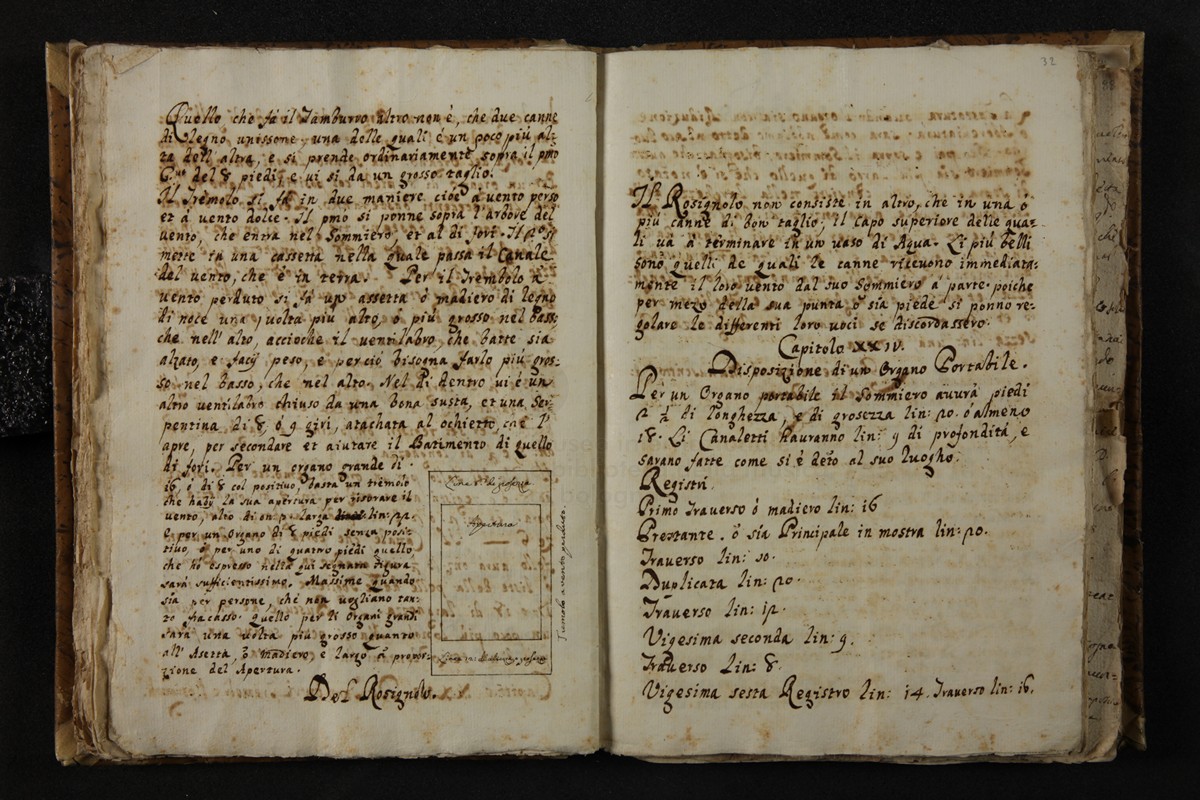 Quello che fà il Tamburro altro non è, che due canne
di legno unissone, una delle quali è un poco più al-
ta dell'altra, e si prende ordinariamente sopra il pmo
del 8 piedi, e vi si da un grosso taglio.
Il Tremolo si fà in due maniere cioè à vento perso
et à vento dolce. Il pmo si ponne sopra l'arbore del
vento, che entra nel Sommiero, et al di fori. Il 2º si
mette in una cassetta nella quale passa il Canale
del vento, che è in terra. Per il Trembolo à
vento perduto si fà un assetta ò madiero di legno
di noce una volta più alto, ò più grosso nel bass:
che nell'alto, accioche il ventilabro, che batte sia
alzato, e facij peso, e perciò bisogna farlo più gros-
so nel basso, che nel alto. Nel di dentro vi è un
altro ventilabro chiuso da una bona susta, et una Ser-
pentina, di 8 ò 9 giri, atachata al ochietto, che l'
apre, per secondare et aiutare il Batimento di quello
di fori. Per un organo grande di
16, ò di 8 col positivo, basta un tremolo
che habij la sua apertura per ristorare il
vento, alto di on p: larga lin: 22.
e per un Organo di 8 piedi senza posi-
tivo, ò per uno di quatro piedi quello
che hò espresso nella qui segnata figura
sarà sufficientissimo. Massime quando
sia per persone, che non vogliano tan-
to fracasso. quello per li Organi grandi
sarà una volta più grosso quanto
all'Asetta, ò madiero, e largo à propor-
zione del Apertura.
Apertura
Tremolo a vento perduto.
Del Rosignolo.
32
Il Rosignolo non consiste in altro, che in una ò
più canne di bon taglio, il capo superiore delle qua-
li và à terminare in un vaso di Aqua. Li più belli
sono quelli, de quali le canne riceuono immediata-
mente il loro vento dal suo Sommiero à parte. poiche
per mezo della sua punta ò sia piede si ponno re-
golare le differenti loro voci se discordassero.
Capitolo XXIV.
Disposizione di un Organo Portabile.
Per un Organo portabile il Sommiero auurà piedi
2 ½ di longhezza, e di grosezza lin: 20. ò almeno
18. Li Canaletti hauranno lin: 9 di profondità, e
sarano fatte come si è detto al suo luogho.
Registri.
Primo Trauerso ò madiero lin: 16
Prestante. ò sia Principale in mostra lin: 20.
Trauerso lin: 10.
Duplicata lin: 20.
Trauerso lin: 12.
Vigesima seconda lin: 9.
Trauerso Lin: 8.
Vigesima sesta Registro lin: 14. Trauerso lin: 16.